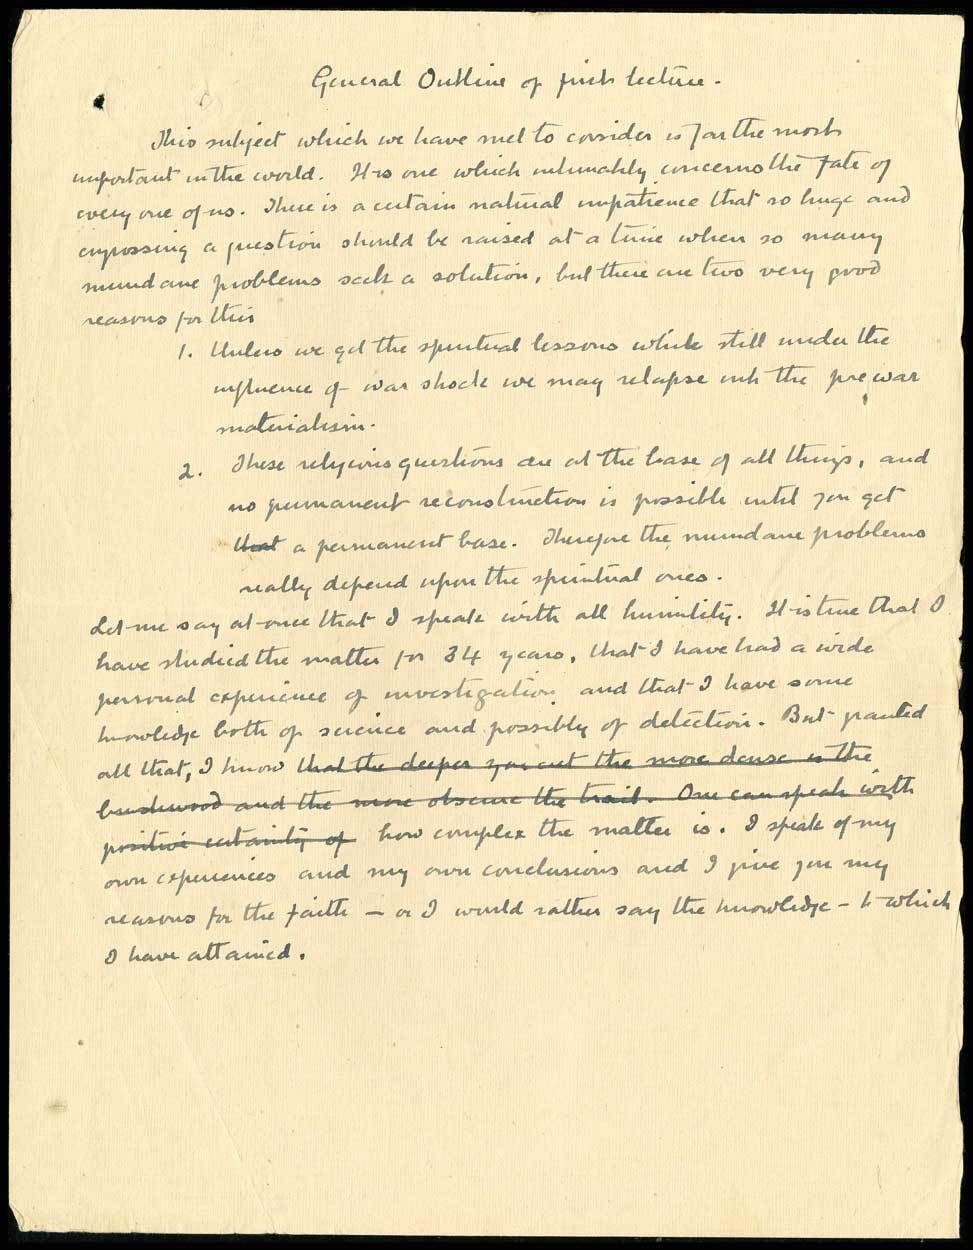 General Outline of first lecture.
This subject which we have met to consider is far the most
important in the world. It is one which intimately concerns the fate of
every one of us. There is a certain natural impatience that so huge and
engrossing a question should be raised at a time when so many
mundane problems seek a solution, but there are two very good
reasons for this
1. Unless we get the spiritual lessons while still under the
influence of war shock we may relapse into the pre war
materialism.
2. These religious questions are at the base of all things, and
no permanent reconstruction is possible until you get
that a permanent base. Therefore the mundane problems
really depend upon the spiritual ones.
Let me say at once that I speak with all humility. It is true that I
have studied the matter for 34 years, that I have had a wide
personal experience of investigation and that I have some
knowledge both of science and possibly of detection. But granted
all that, I know that the deeper you cut the more dense is the
brushwood and the more obscure the trail. One can speak with
positive certainty of how complex the matter is. I speak of my
own experiences and my own conclusions and I give you my
reasons for the faith – or I would rather say the knowledge – to which
I have attained.